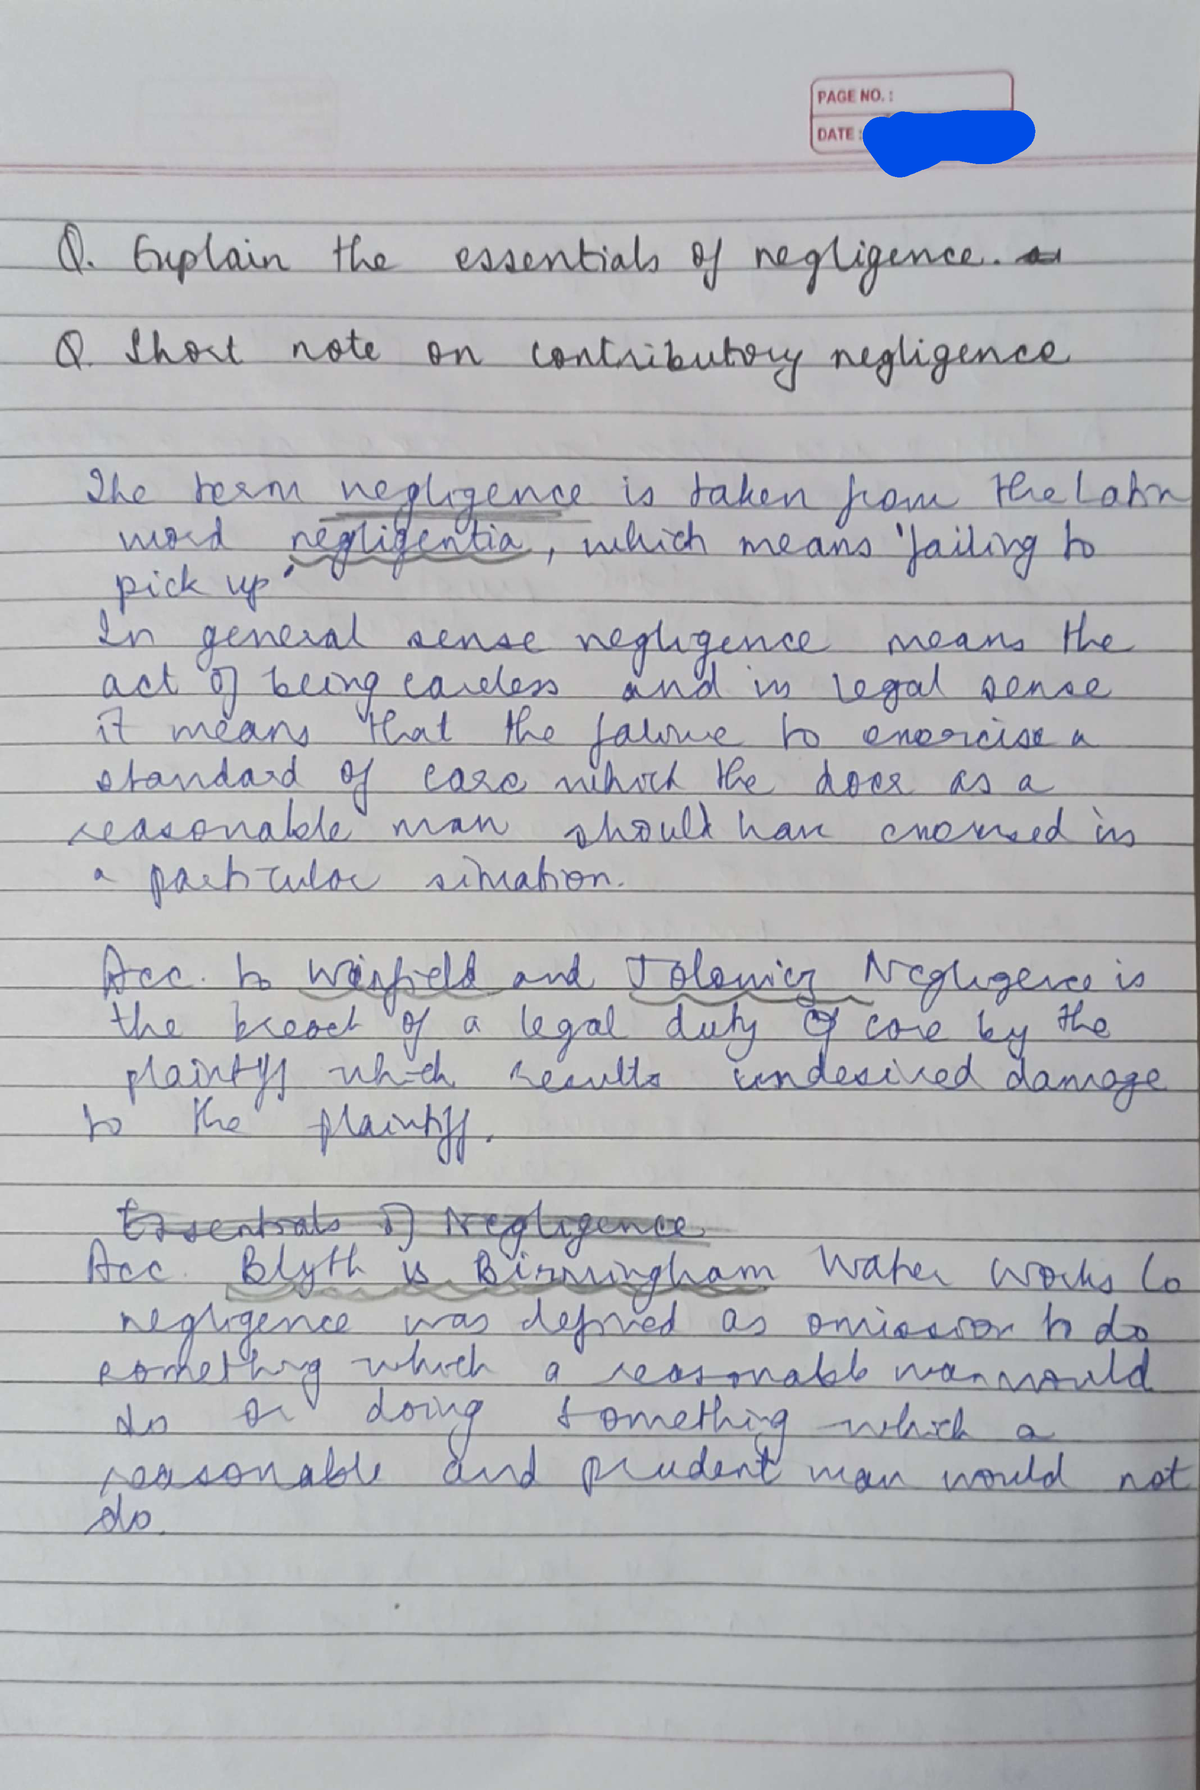 PAGE NO. :
DATE :
Q. Explain the essentials of negligence.
Q. Short note on contributory negligence
The term negligence is taken from the Latin
word negligentia, which means 'failing to
pick up'
In general sense negligence means the
act of being careless and in legal sense
it means that the failure to exercise a
standard of care which the doer as a
reasonable man should have exercised in
a particular situation.
Acc. to Winfield and Jolowicz Negligence is
the breach of a legal duty of care by the
plaintiff which results undesired damage
to the plaintiff.
Essentials of Negligence
Acc. Blyth vs Birmingham Water Works Co
negligence was defined as omission to do
something which a reasonable man would
do or doing something which a
reasonable and prudent man would not
do.